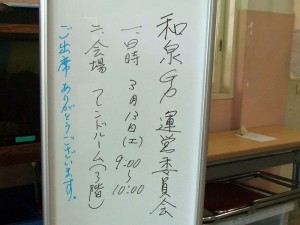 和泉GP 運営委員会
一、日時 3月13日(土) 9:00～10:00
二、会場 フレンドルーム(3階)
ご出席ありがとうございます。